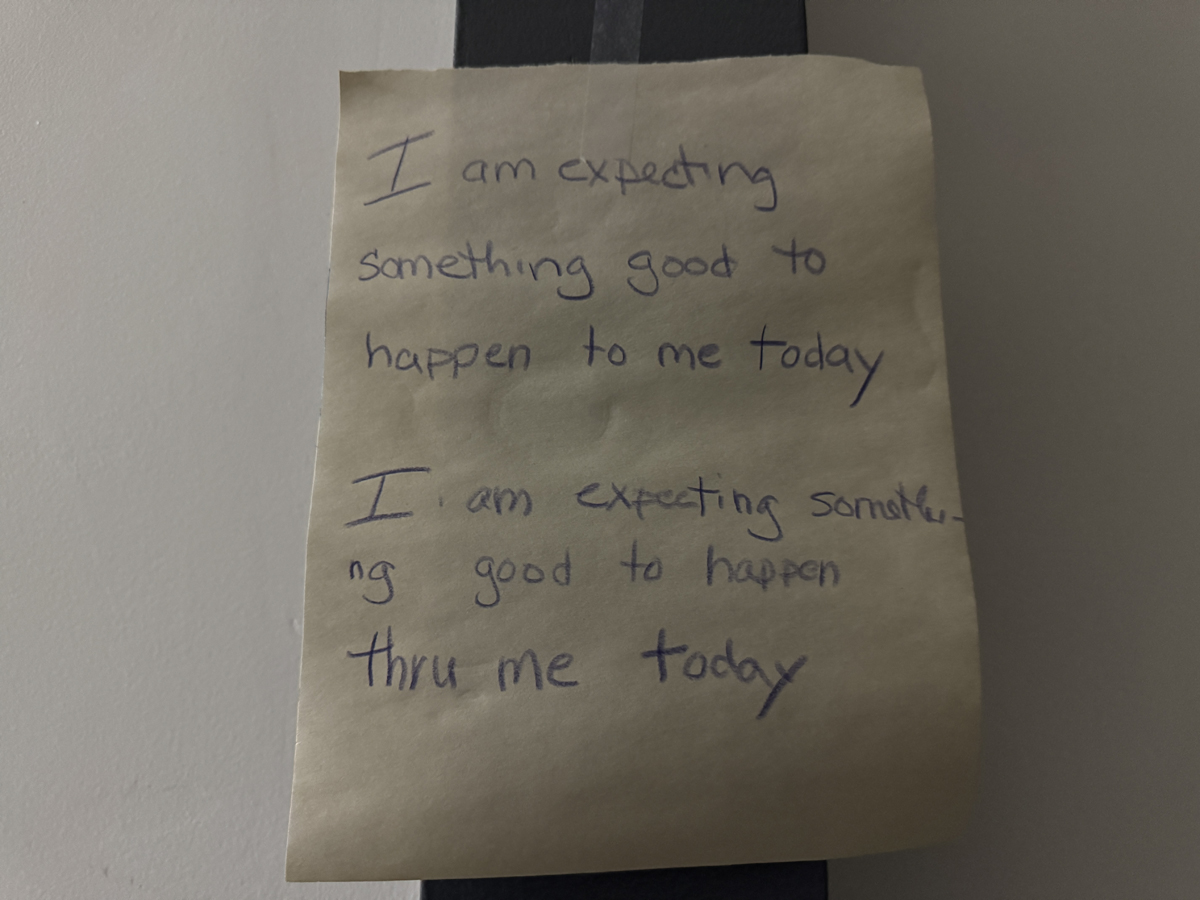 I am expecting
something good to
happen to me today
I am expecting somethi-
ng good to happen
thru me today